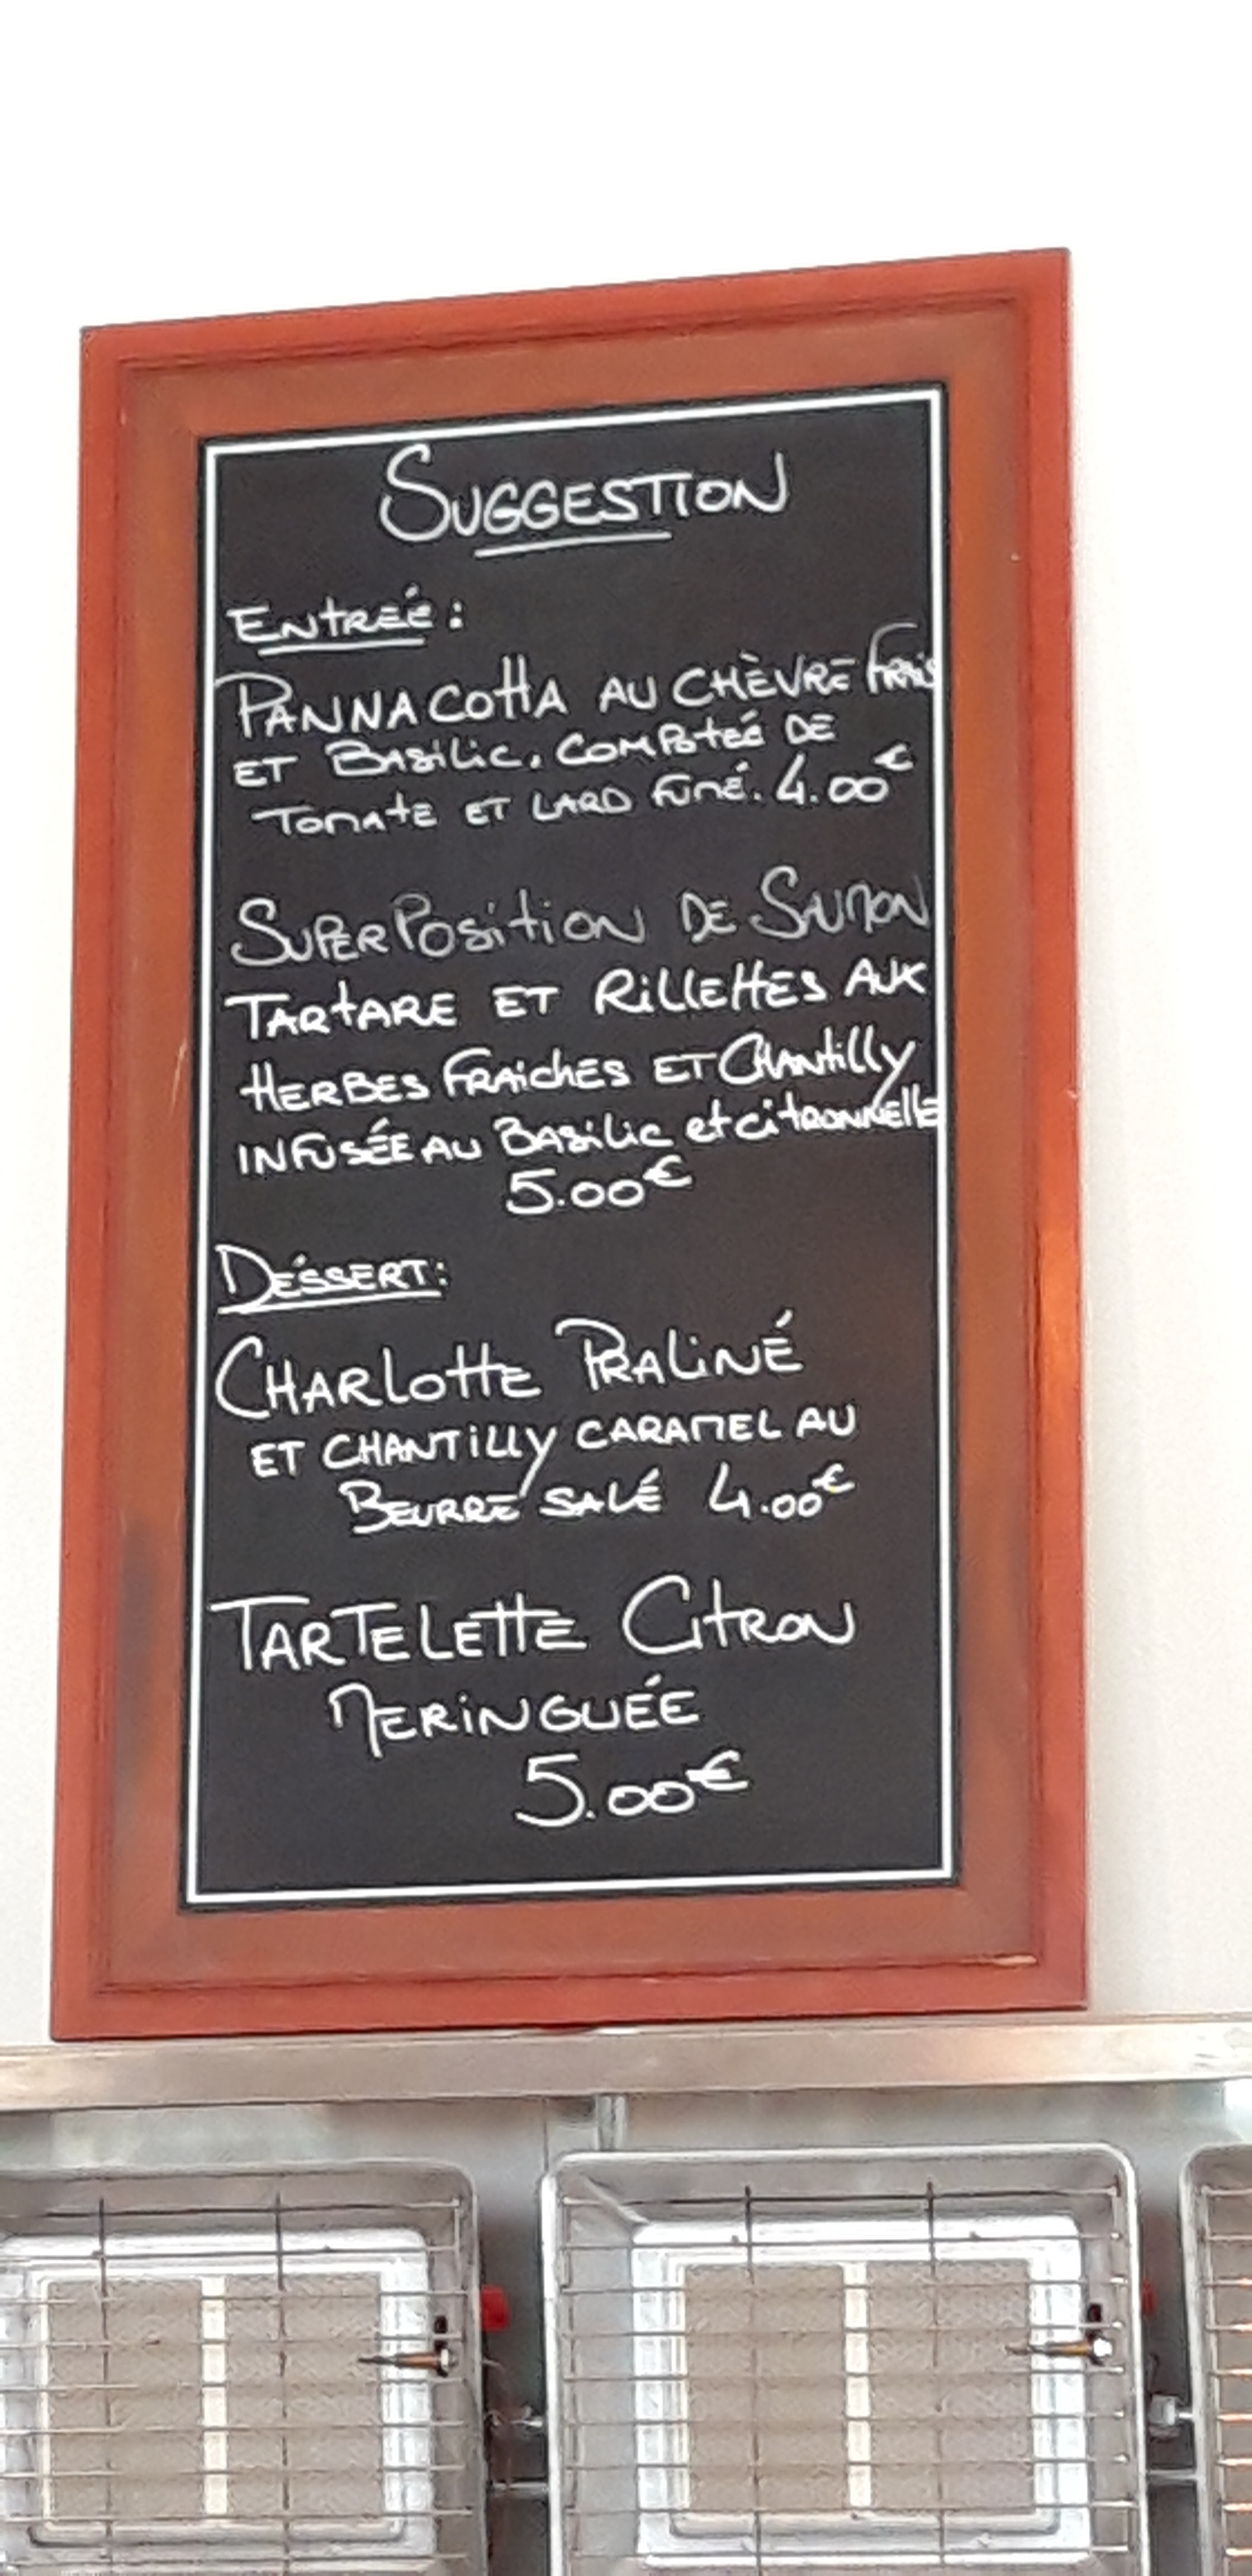 SUGGESTION
ENTRÉE :
PANNACOTTA AU CHÈVRE FRAIS
ET BASILIC. COMPOTÉE DE
TOMATE ET LARD FUMÉ. 4.00€
SUPERPOSITION DE SAUMON
TARTARE ET RILLETTES AUX
HERBES FRAICHES ET CHANTILLY
INFUSÉE AU BASILIC et CITRONNELLE
5.00€
DÉSSERT:
CHARLOTTE PRALINÉ
ET CHANTILLY CARAMEL AU
BEURRE SALÉ 4.00€
TARTELETTE CITRON
MERINGUÉE
5.00€